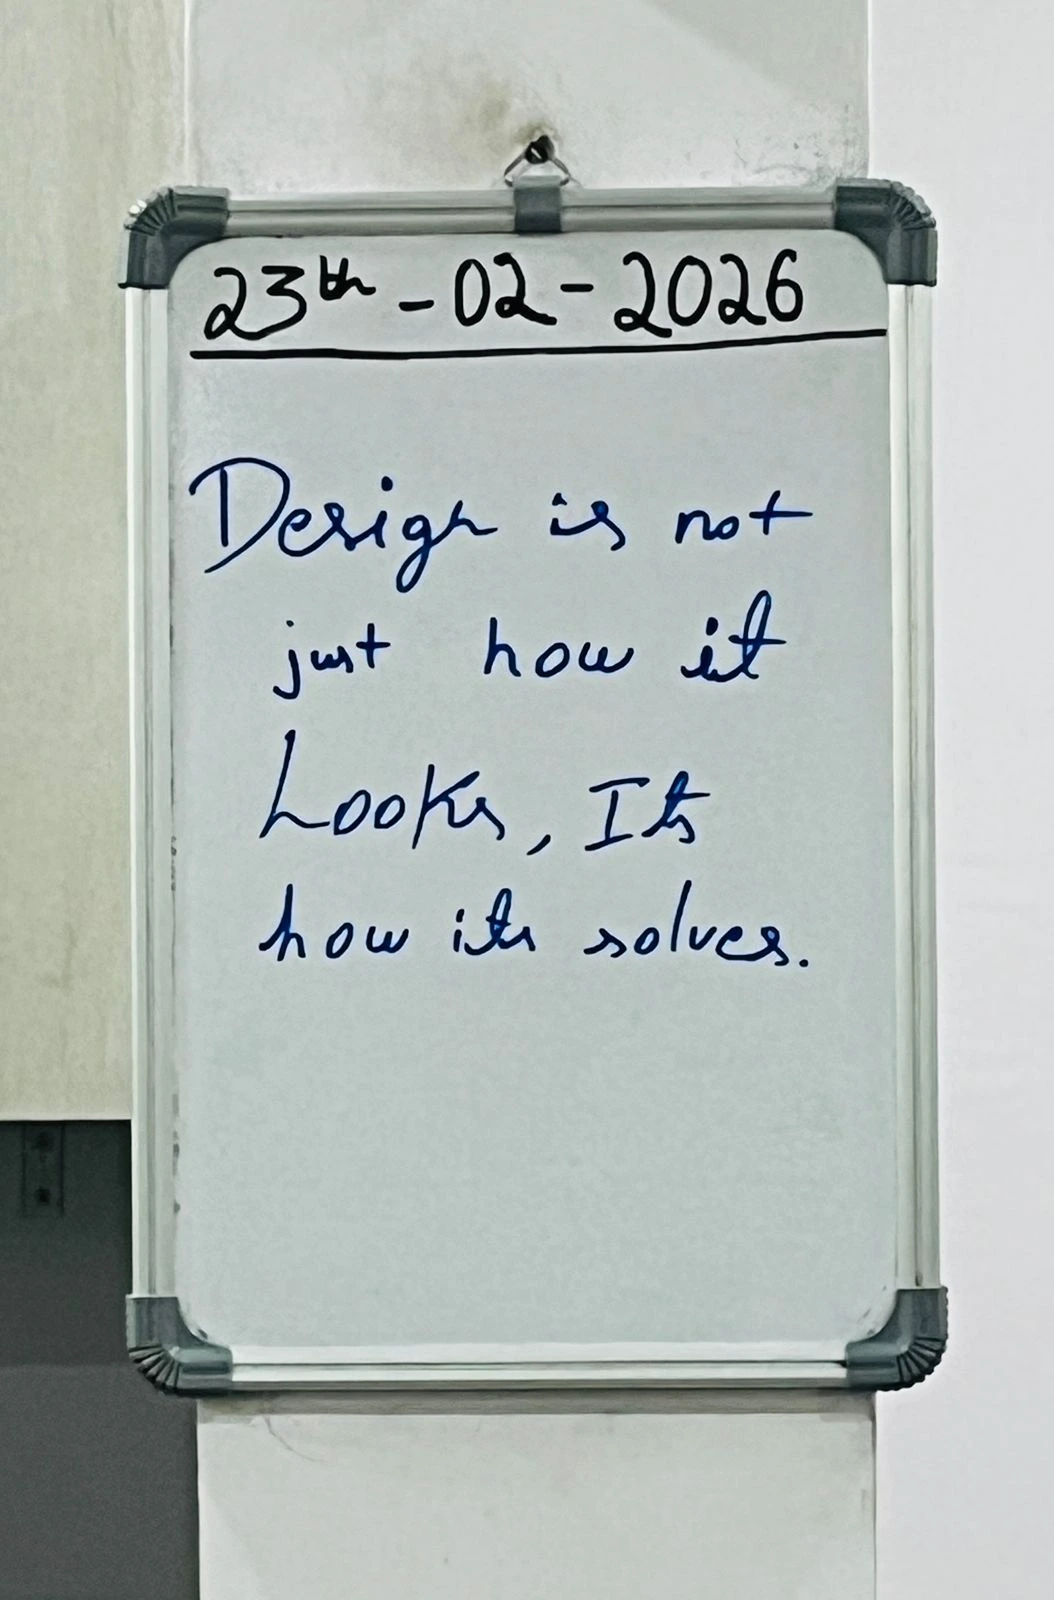 23th-02-2026
Design is not
just how it
Looks, Its
how its solves.